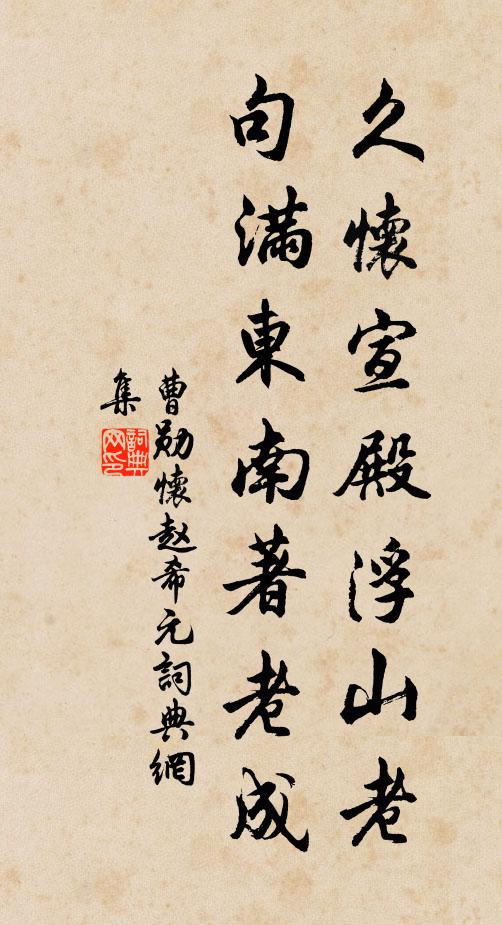 久懷宣殿浮山老
句滿東南著老成
曹勛懷赵希元詞典網
集
詞典网印